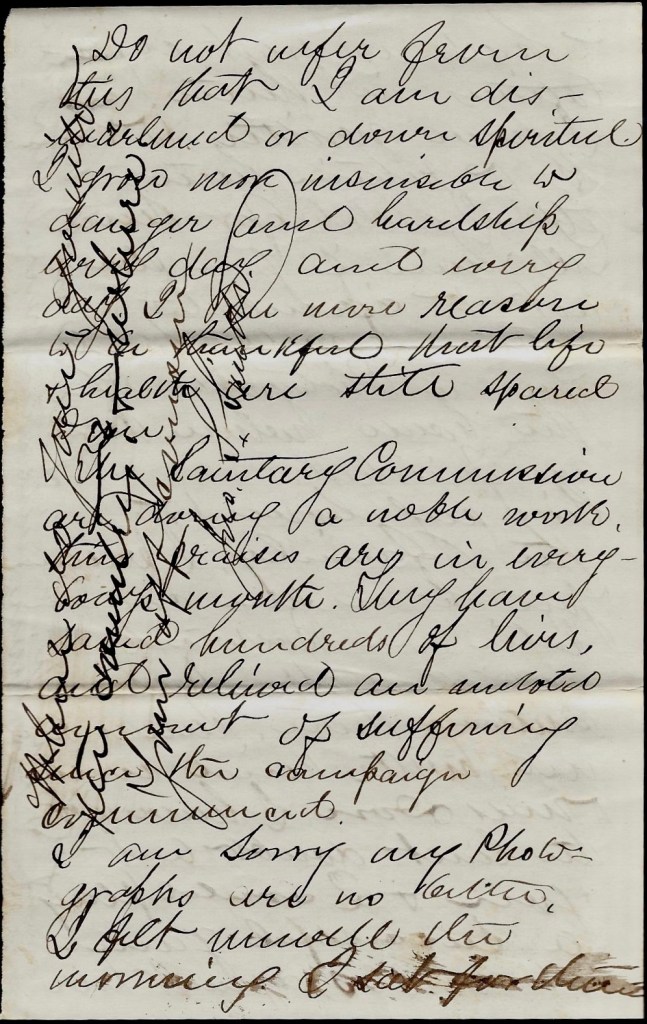 Do not infer from
this that I am dis-
heartened or down spirited.
I grow more insensible to
danger and hardship
every day and every
day I see more reason
to be thankful that life
& health are still spared
The Sanitary Commission
are doing a noble work,
their praises are in every-
body's mouth. They have
saved hundreds of lives,
and relieved an untold
amount of suffering
since the campaign
commenced.
I am sorry my Photo-
graphs are no better,
I felt unwell the
morning I sat for them
Please
the country
Your